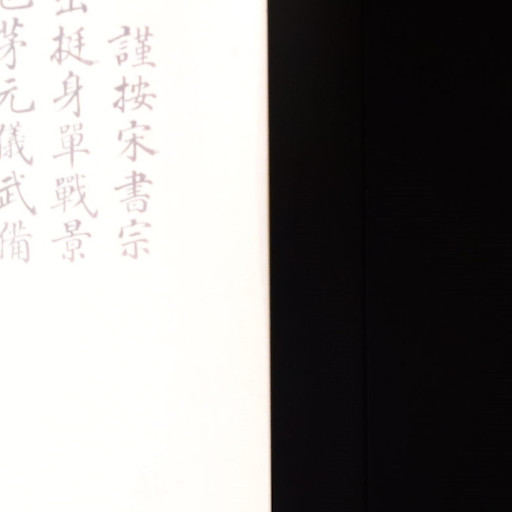 謹按宋書宗
出挺身單戰景
茅元儀武備